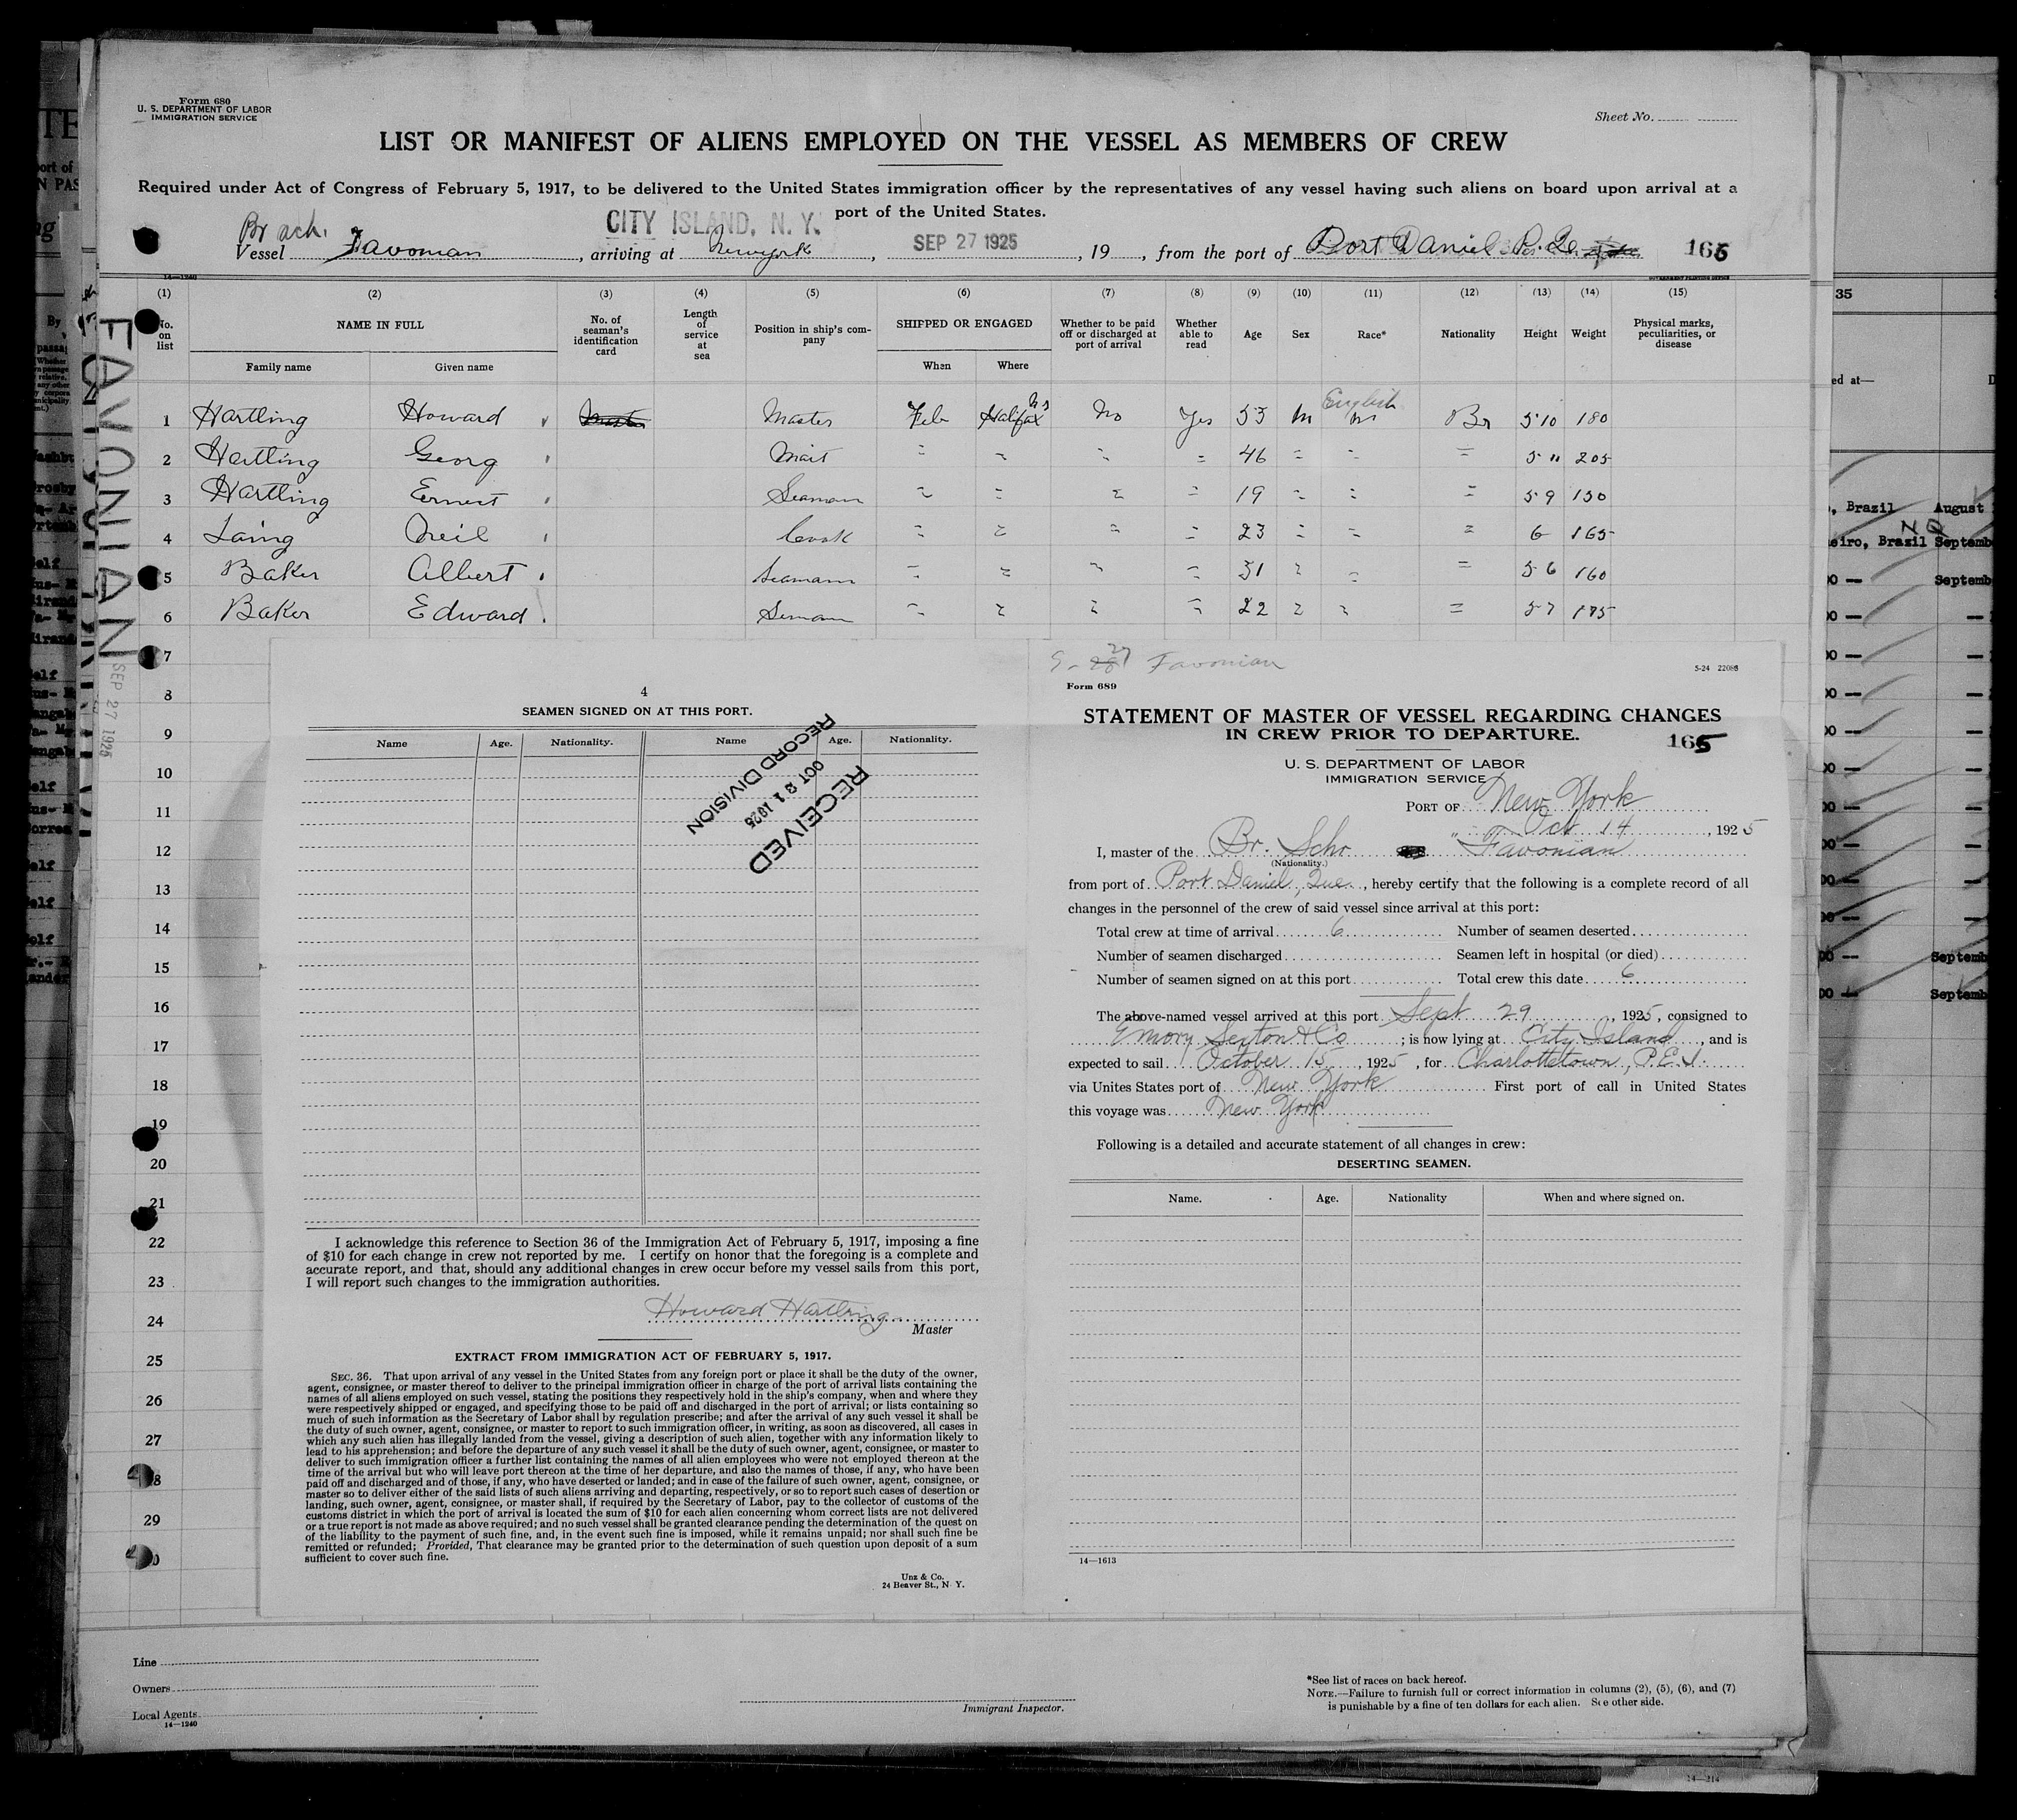 Form 680
U. S. DEPARTMENT OF LABOR
IMMIGRATION SERVICE
Sheet No.
LIST OR MANIFEST OF ALIENS EMPLOYED ON THE VESSEL AS MEMBERS OF CREW
Required under Act of Congress of February 5, 1917, to be delivered to the United States immigration officer by the representatives of any vessel having such aliens on board upon arrival at a
port of the United States.
CITY ISLAND, N. Y.
Br sch.
Vessel Favonian, arriving at Newyork, SEP 27 1925, 19, from the port of Port Daniel P. Q. 165
14—1240
(1) (2) (3) (4) (5) (6) (7) (8) (9) (10) (11) (12) (13) (14) (15)
No. on list NAME IN FULL No. of seaman's identification card Length of service at sea Position in ship's company SHIPPED OR ENGAGED Whether to be paid off or discharged at port of arrival Whether able to read Age Sex Race* Nationality Height Weight Physical marks, peculiarities, or disease
Family name Given name When Where
1 Hartling Howard Master Feb Halifax NS No Yes 53 m English Br 5 10 180
2 Hartling Georg Mait " " " " 46 " " " 5 11 205
3 Hartling Ernest Seaman " " " " 19 " " " 5 9 150
4 Laing Neil Cook " " " " 23 " " " 6 165
5 Baker Albert Seamann " " " " 31 " " " 5 6 160
6 Baker Edward Seman " " " " 22 " " " 5 7 175
7
8
9
10
11
12
13
14
15
16
17
18
19
20
21
22
23
24
25
26
27
8
29
0
FAVONIAN
SEP 27 1925
4
SEAMEN SIGNED ON AT THIS PORT.
Name Age. Nationality. Name Age. Nationality.
RECEIVED
OCT 21 1925
RECORD DIVISION
I acknowledge this reference to Section 36 of the Immigration Act of February 5, 1917, imposing a fine
of $10 for each change in crew not reported by me. I certify on honor that the foregoing is a complete and
accurate report, and that, should any additional changes in crew occur before my vessel sails from this port,
I will report such changes to the immigration authorities.
Howard Hartling
Master
EXTRACT FROM IMMIGRATION ACT OF FEBRUARY 5, 1917.
SEC. 36. That upon arrival of any vessel in the United States from any foreign port or place it shall be the duty of the owner,
agent, consignee, or master thereof to deliver to the principal immigration officer in charge of the port of arrival lists containing the
names of all aliens employed on such vessel, stating the positions they respectively hold in the ship's company, when and where they
were respectively shipped or engaged, and specifying those to be paid off and discharged in the port of arrival; or lists containing so
much of such information as the Secretary of Labor shall by regulation prescribe; and after the arrival of any such vessel it shall be
the duty of such owner, agent, consignee, or master to report to such immigration officer, in writing, as soon as discovered, all cases in
which any such alien has illegally landed from the vessel, giving a description of such alien, together with any information likely to
lead to his apprehension; and before the departure of any such vessel it shall be the duty of such owner, agent, consignee, or master to
deliver to such immigration officer a further list containing the names of all alien employees who were not employed thereon at the
time of the arrival but who will leave port thereon at the time of her departure, and also the names of those, if any, who have been
paid off and discharged and of those, if any, who have deserted or landed; and in case of the failure of such owner, agent, consignee, or
master so to deliver either of the said lists of such aliens arriving and departing, respectively, or so to report such cases of desertion or
landing, such owner, agent, consignee, or master shall, if required by the Secretary of Labor, pay to the collector of customs of the
customs district in which the port of arrival is located the sum of $10 for each alien concerning whom correct lists are not delivered
or a true report is not made as above required; and no such vessel shall be granted clearance pending the determination of the quest on
of the liability to the payment of such fine, and, in the event such fine is imposed, while it remains unpaid; nor shall such fine be
remitted or refunded; Provided, That clearance may be granted prior to the determination of such question upon deposit of a sum
sufficient to cover such fine.
Unz & Co.
24 Beaver St., N. Y.
9-27 Favonian
5-24 22086
Form 689
STATEMENT OF MASTER OF VESSEL REGARDING CHANGES
IN CREW PRIOR TO DEPARTURE.
165
U. S. DEPARTMENT OF LABOR
IMMIGRATION SERVICE
PORT OF New York
Oct 14, 1925
I, master of the Br. Schr " Favonian
(Nationality.)
from port of Port Daniel, Que., hereby certify that the following is a complete record of all
changes in the personnel of the crew of said vessel since arrival at this port:
Total crew at time of arrival 6 Number of seamen deserted
Number of seamen discharged Seamen left in hospital (or died)
Number of seamen signed on at this port Total crew this date 6
The above-named vessel arrived at this port Sept 29, 1925, consigned to
Emory Sexton & Co; is now lying at City Island, and is
expected to sail October 15, 1925, for Charlottetown, P.E.I.
via Unites States port of New York First port of call in United States
this voyage was New York
Following is a detailed and accurate statement of all changes in crew:
DESERTING SEAMEN.
Name. Age. Nationality When and where signed on.
14—1613
Line
Owners
Local Agents
14—1240
Immigrant Inspector.
*See list of races on back hereof.
NOTE.—Failure to furnish full or correct information in columns (2), (5), (6), and (7)
is punishable by a fine of ten dollars for each alien. See other side.
35
ed at—
, Brazil August
eiro, Brazil Septemb
Septemb
Septemb
Septemb
14—214